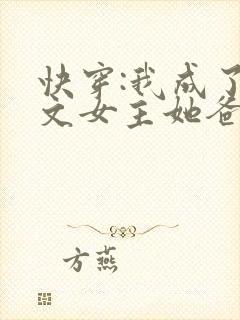 快穿:我成了
文女主她爸
方燕